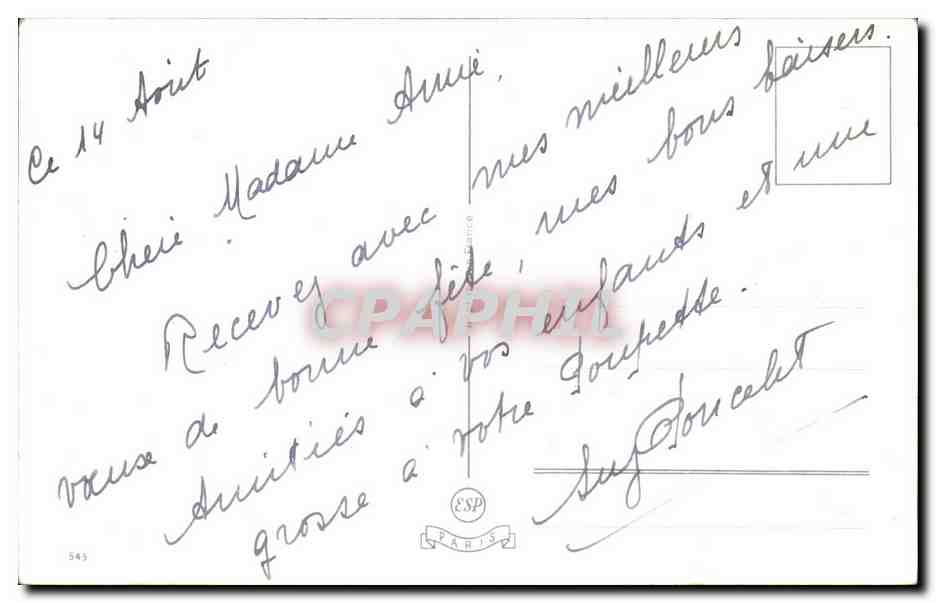 Ce 14 Août
Chère Madame Annie,
Recevez avec mes meilleurs
vœux de bonne fête, mes bons baisers.
Amitiés à vos enfants et une
grosse à votre Poupette.
Suzy Poncelet
CPAPHIL
France
ESP
PARIS
545